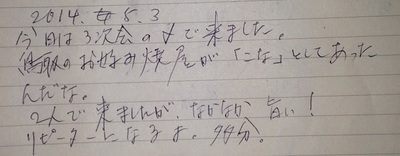 2014. 5. 3
今日は3次会の〆で来ました。
のお好み焼屋が「こな」としてあった
んだな。
2人で来ましたが、なかなか旨い!
リピーターになるよ。多分。